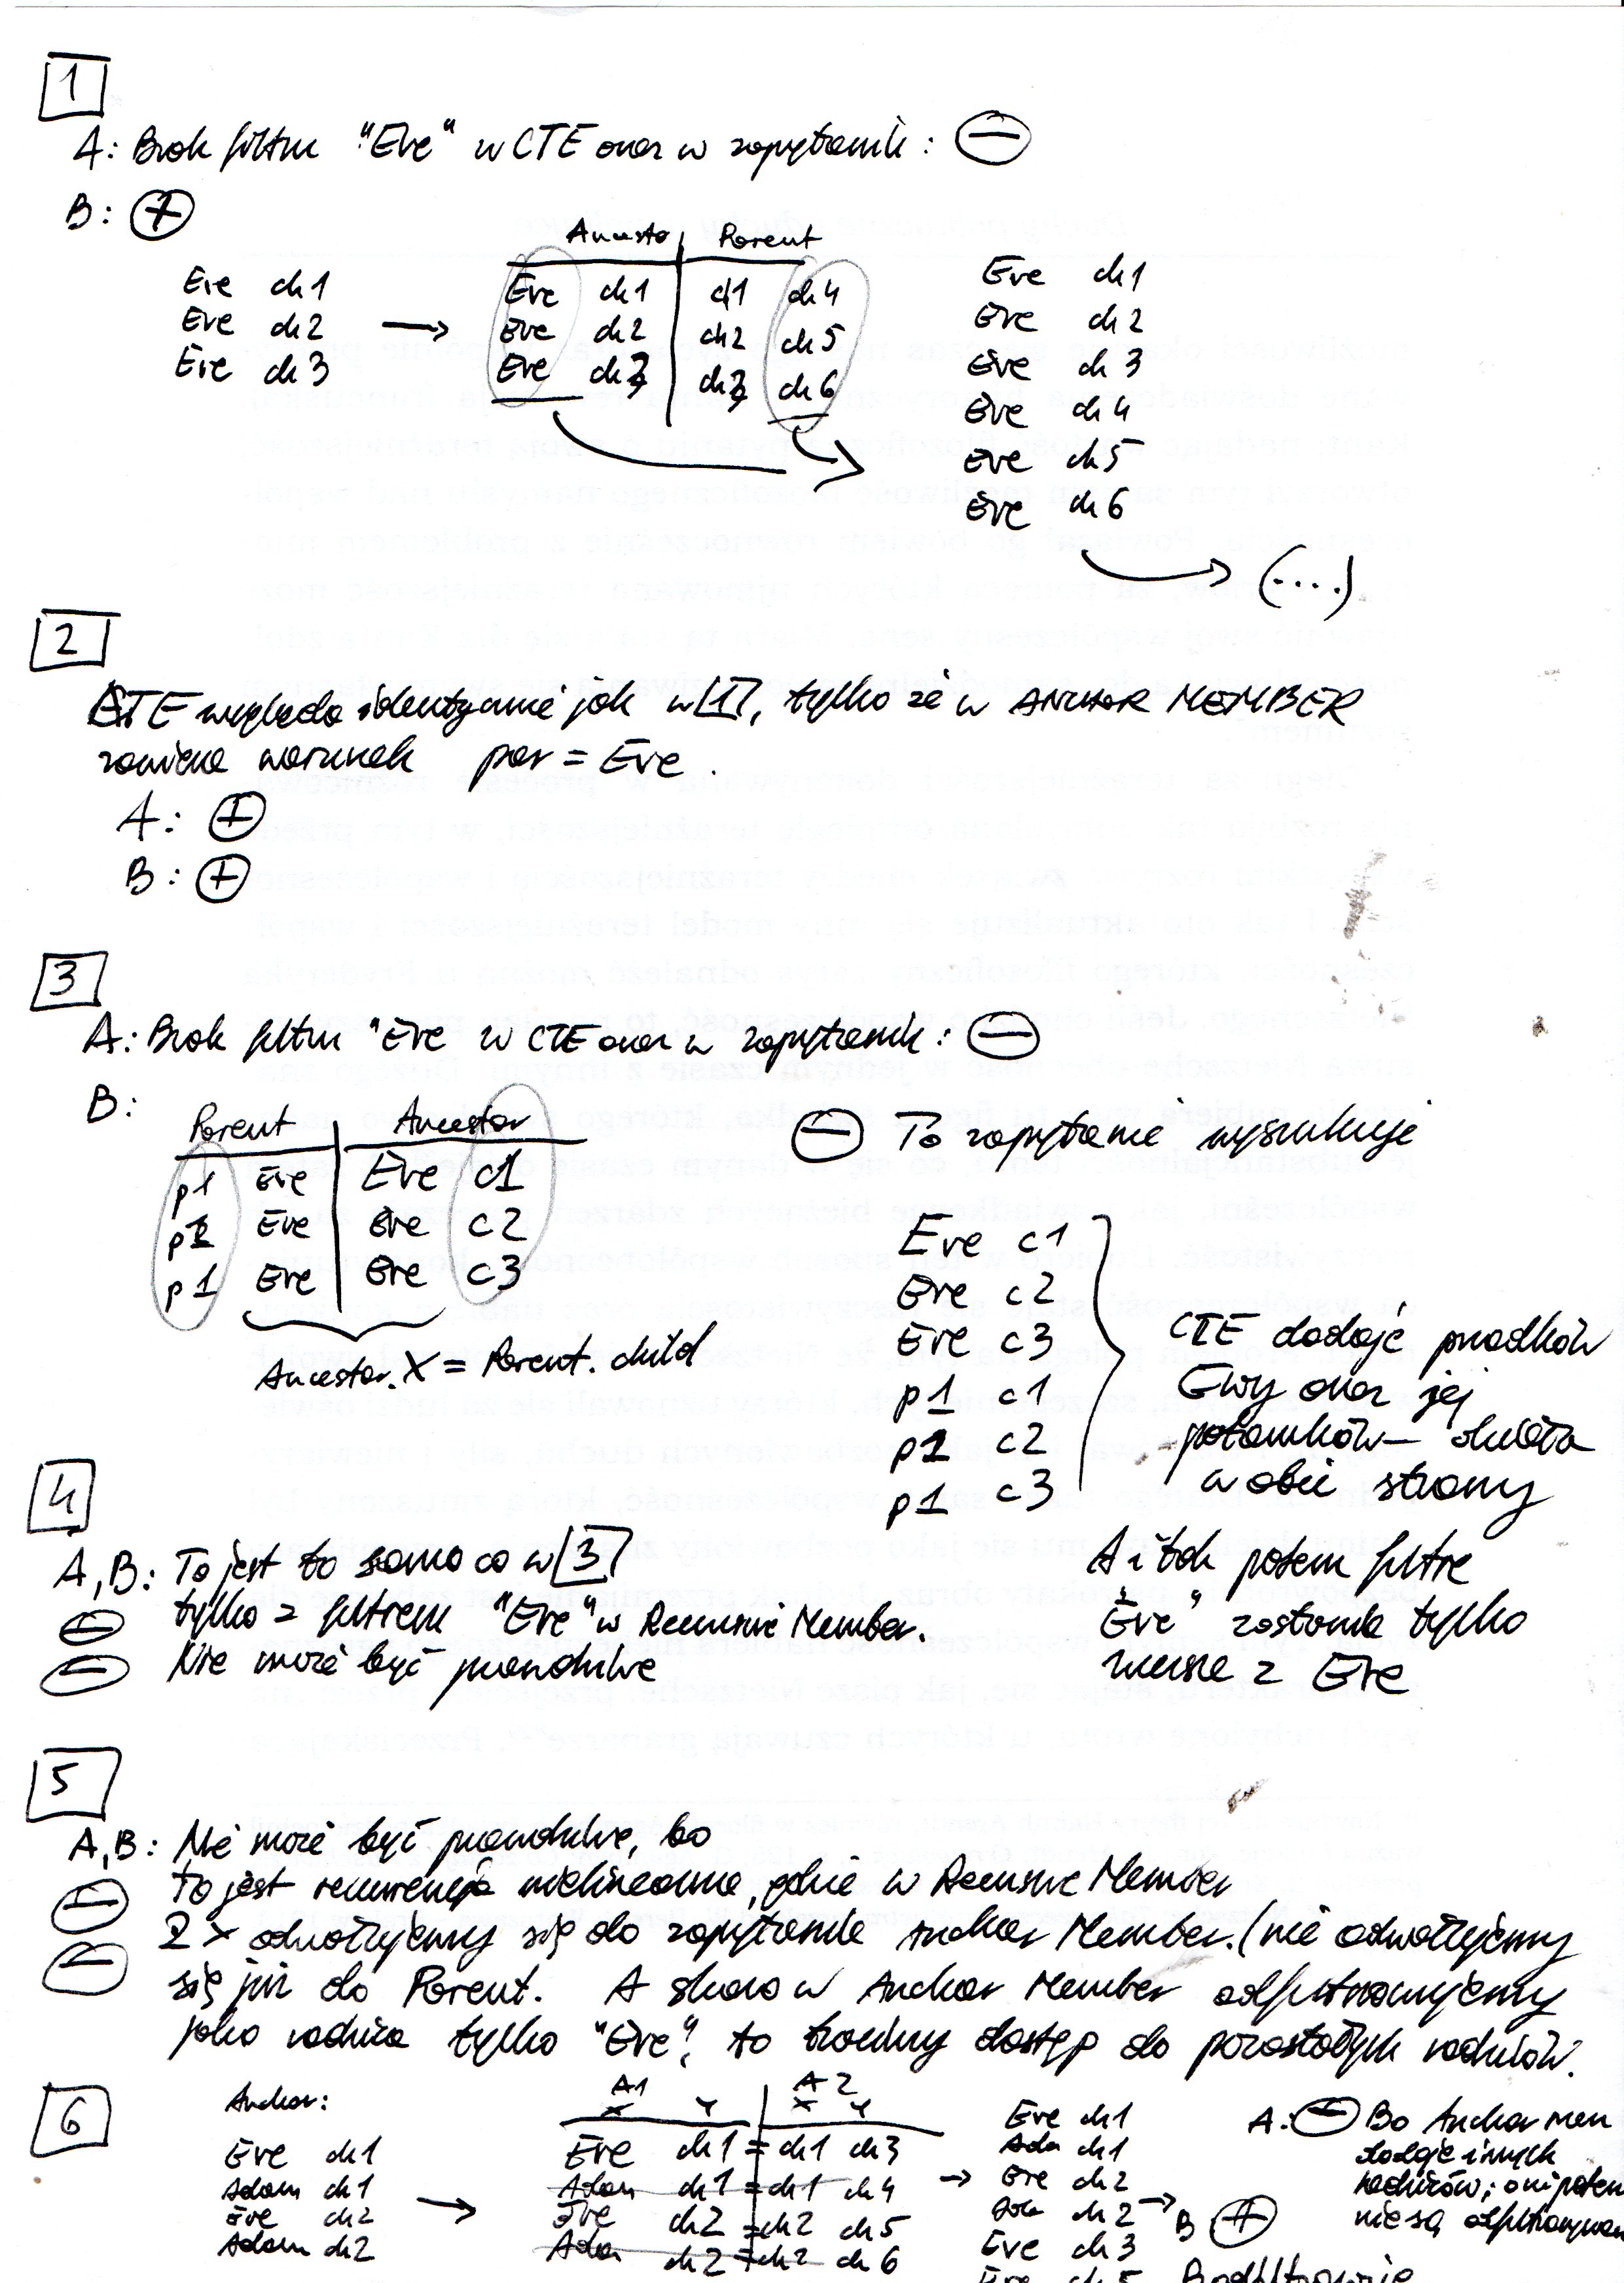 1
A: Brak filtru "Eve" w CTE oraz w zapytaniu: ⊖
B: ⊕
Ancesto | Parent
Eve ch1 → Eve ch1 | ch1 ch4
Eve ch2 Eve ch2 | ch2 ch5
Eve ch3 Eve ch3 | ch3 ch6
Eve ch1
Eve ch2
Eve ch3
Eve ch4
Eve ch5
Eve ch6
(....)
2
CTE wygląda identycznie jak w [1], tylko że w ANCHOR MEMBER
zawiera warunek par = Eve.
A: ⊕
B: ⊕
3
A: Brak filtru "Eve w CTE oraz w zapytaniu: ⊖
B:
Parent | Ancestor
p1 Eve | Eve c1
p1 Eve | Eve c2
p1 Eve | Eve c3
Ancestor.X = Parent.child
⊖ To zapytanie wyszukuje
Eve c1
Eve c2
Eve c3
p1 c1
p1 c2
p1 c3
CTE dodaje przodków
Ewy oraz jej
potomków – działa
w obie strony
A i tak potem filtr
Eve" zostawia tylko
wiersze z Eve
4
A, B: To jest to samo co w [3]
⊖ tylko z filtrem "Eve" w Recursive Member.
⊖ Nie może być prawdziwe
5
A, B: Nie może być prawdziwe, bo
⊖ to jest rekurencja nieliniowa, gdzie w Recursive Member
⊖ 2x odwołujemy się do zapytania Anchor Member. (nie odwołujemy
się już do Parent. A skoro w Anchor Member odfiltrowujemy
jako rodzica tylko "Eve", to tracimy dostęp do pozostałych rodziców.
6
Anchor:
Eve ch1
Adam ch1
Eve ch2
Adam ch2
→
A1 | A2
X Y | X Y
Eve ch1 = ch1 ch3
Adam ch1 = ch1 ch4
Eve ch2 = ch2 ch5
Ada ch2 = ch2 ch6
→
Eve ch1
Ada ch1
Eve ch2
Ada ch2 →
Eve ch3
Eve ch5
A: ⊖ Bo Anchor mem
dodaje innych
rodziców; oni potem
nie są odfiltrowywan
B ⊕